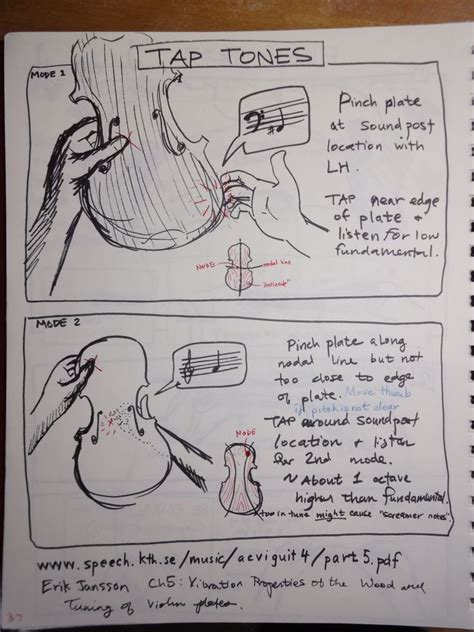 TAP TONES
MODE 1
Pinch plate
at soundpost
location with
LH.
TAP near edge
of plate &
listen for low
fundamental.
NODE
nodal line
MODE 2
Pinch plate along
nodal line but not
too close to edge
of plate. Move thumb
if pitch is not clear
TAP around soundpost
location & listen
for 2nd mode.
~ About 1 octave
higher than fundamental.
NODE
*too in tune might cause "screamer notes".
www.speech.kth.se/music/acviguit4/part5.pdf
Erik Jansson Ch5: Vibration Properties of the Wood and
Tuning of Violin plates.
37